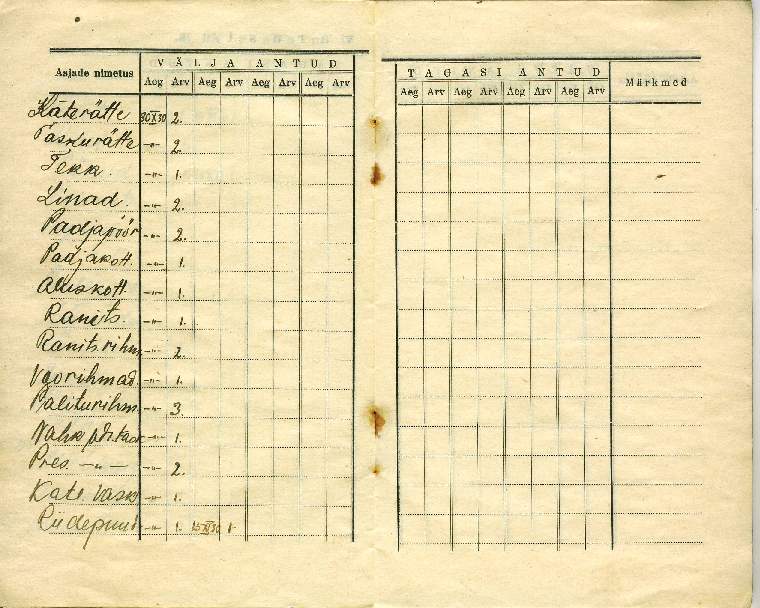 Asjade nimetus
VÄLJA ANTUD
Aeg Arv Aeg Arv Aeg Arv Aeg Arv
TAGASI ANTUD
Aeg Arv Aeg Arv Aeg Arv Aeg Arv
Märkmed
Käterätte 30 X 30 2.
Taskurätte -"- 2
Tekk. -"- 1.
Linad. -"- 2.
Padjapöör -"- 2.
Padjakott. -"- 1.
Aluskott. -"- 1.
Ranits. -"- 1.
Ranitsrihm -"- 2.
Vöörihmad. -"- 1.
Paliturihm -"- 3.
Nahk -"- 1.
Pres. -"- -"- 2.
Kate -"- 1.
Riidepuu -"- 1. 15 XI 30 1.